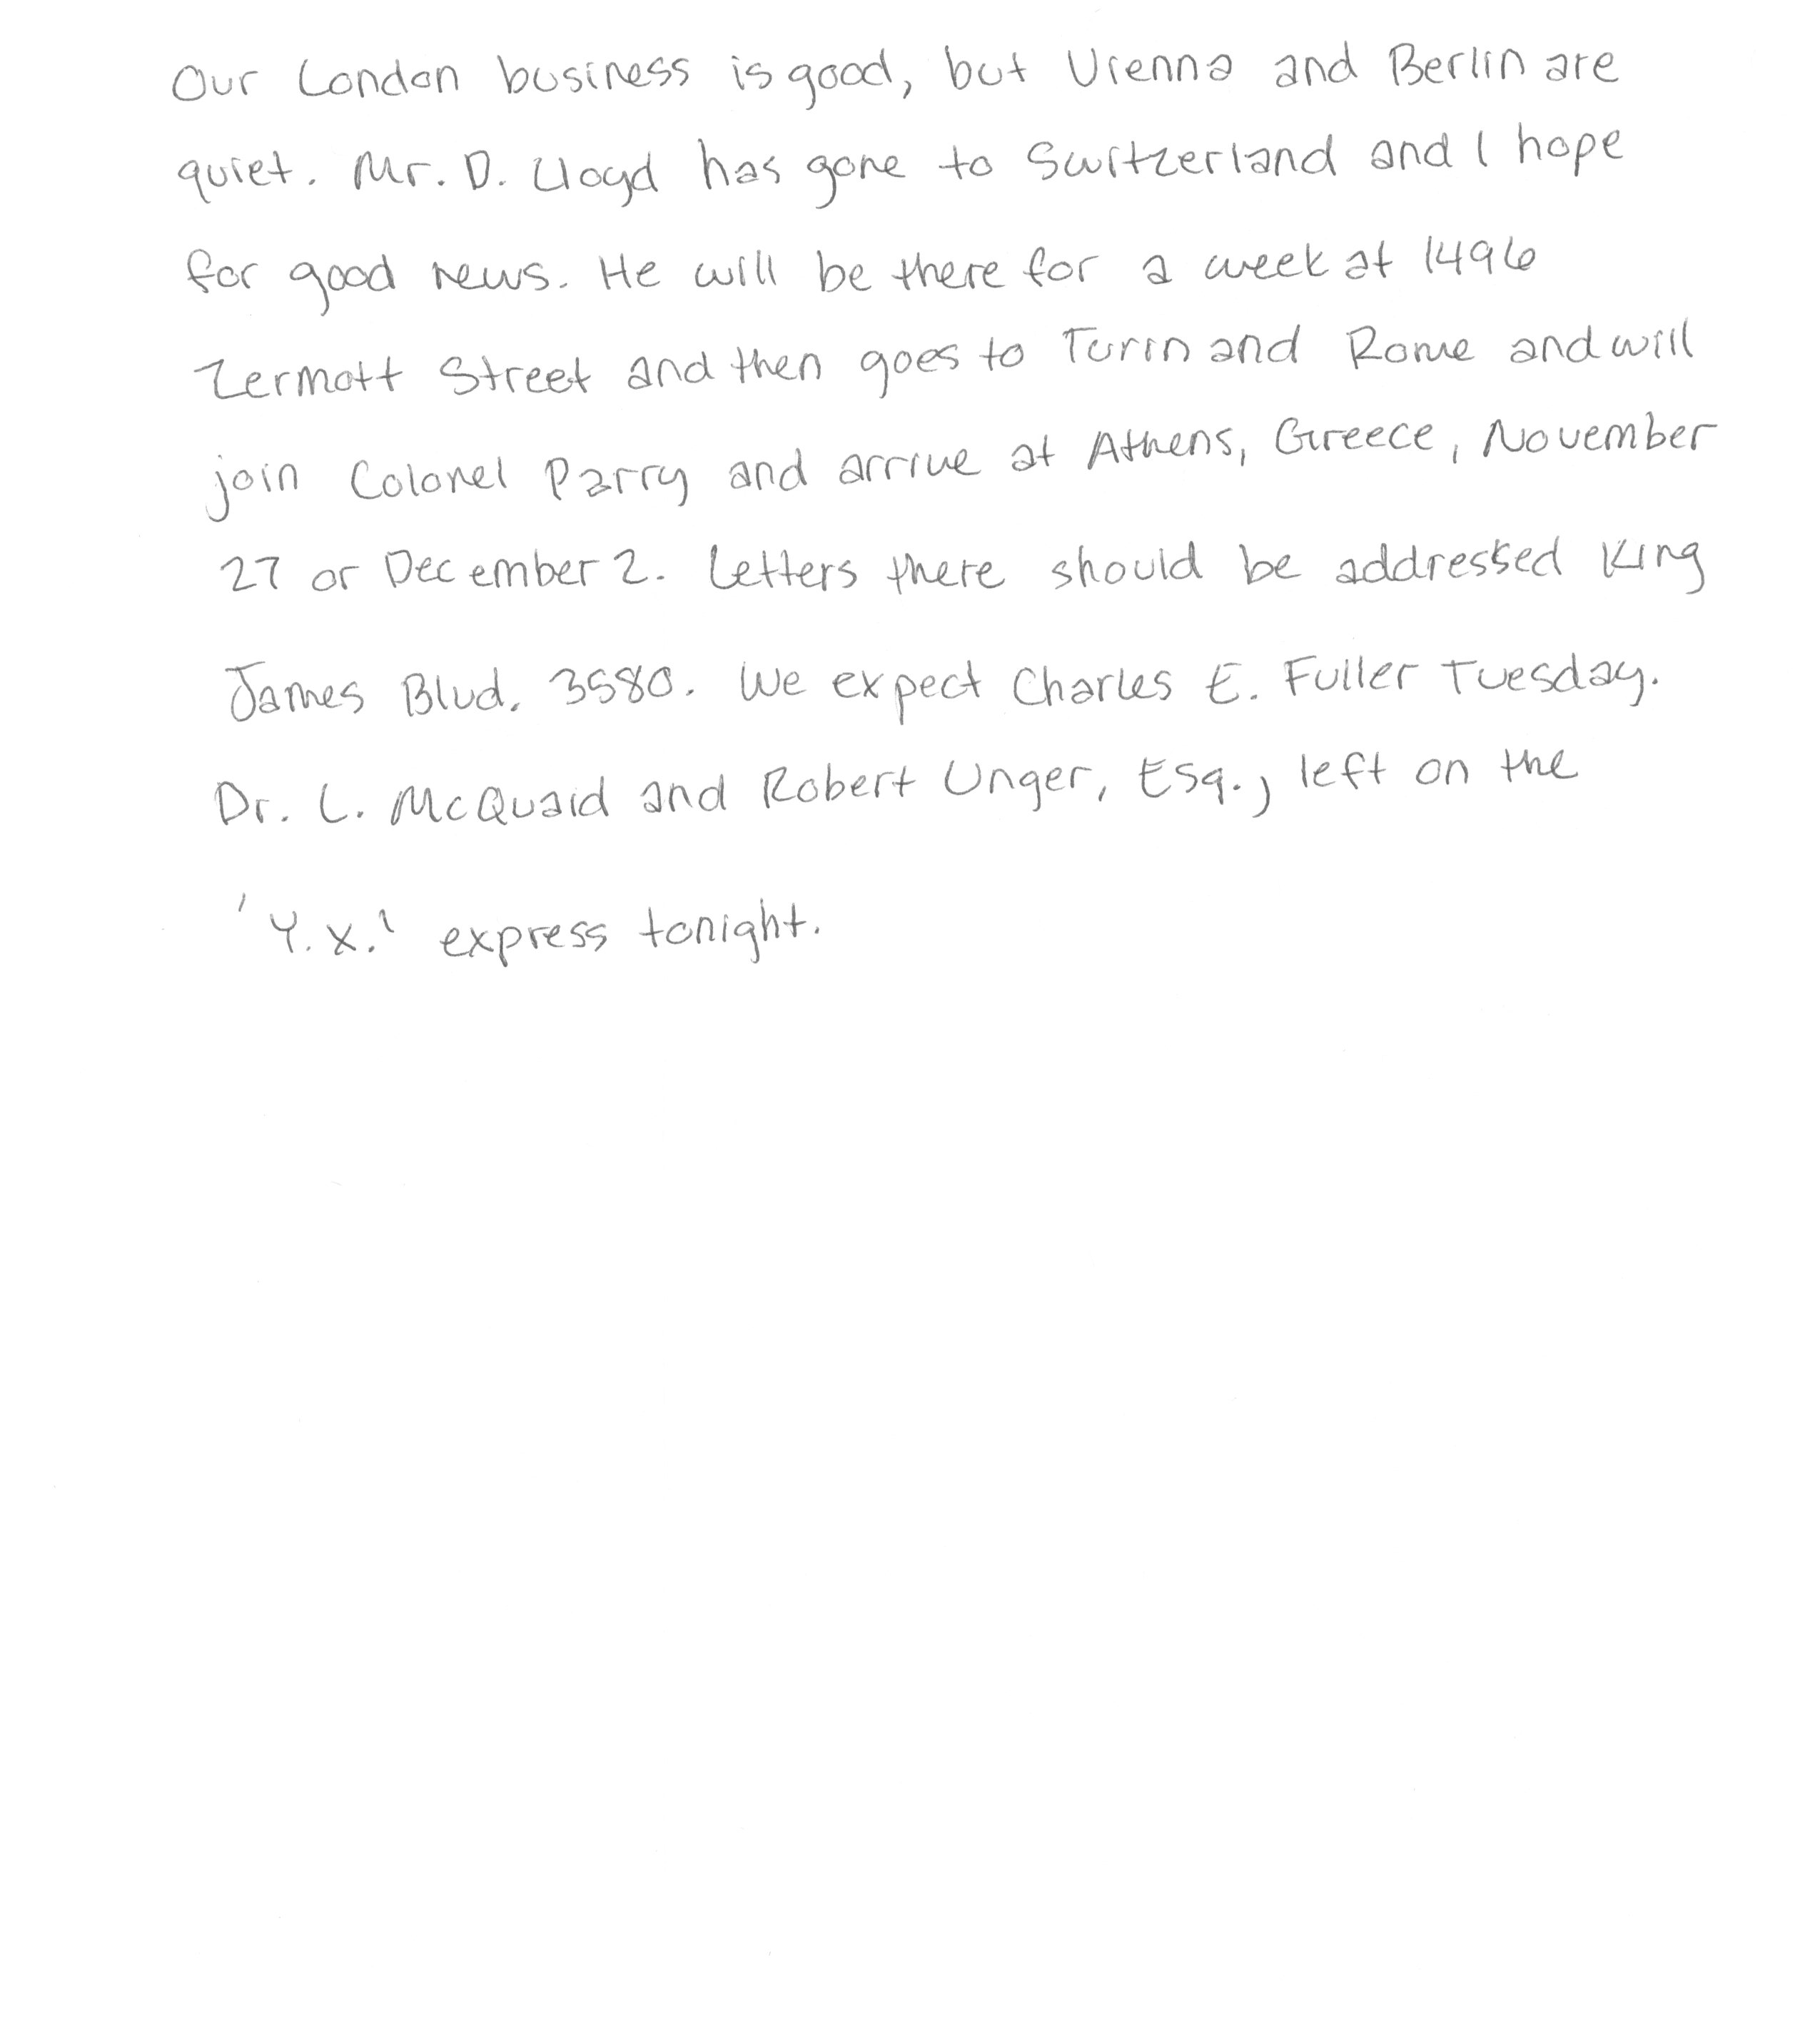 Our London business is good, but Vienna and Berlin are
quiet. Mr. D. Lloyd has gone to Switzerland and I hope
for good news. He will be there for a week at 1496
Zermott Street and then goes to Turin and Rome and will
join Colonel Parry and arrive at Athens, Greece, November
27 or December 2. Letters there should be addressed King
James Blvd. 3580. We expect Charles E. Fuller Tuesday.
Dr. L. McQuaid and Robert Unger, Esq., left on the
'Y.X.' express tonight.